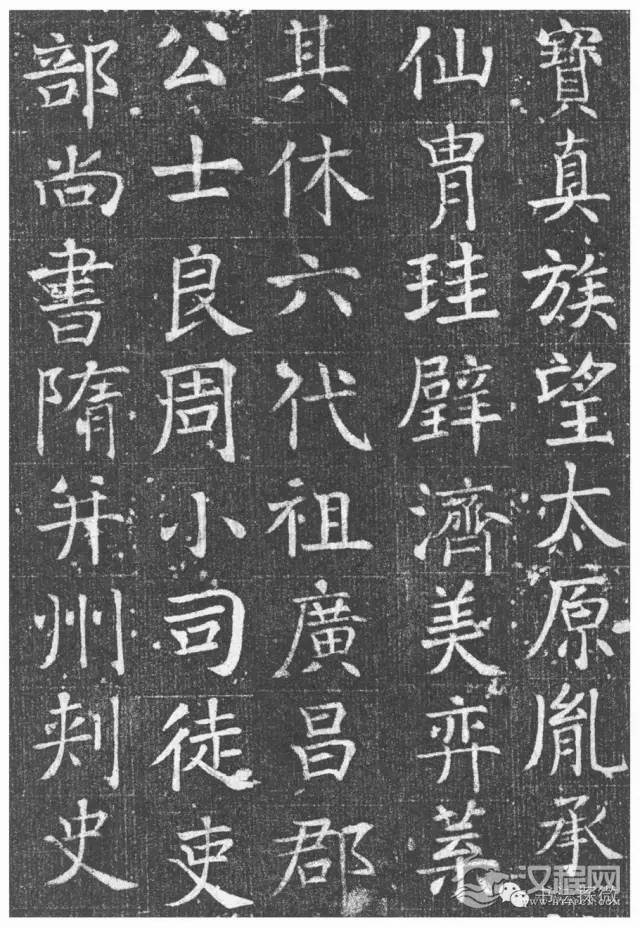 寶真族望太原胤承
仙胄珪璧濟美弈葉
其休六代祖廣昌郡
公士良周小司徒吏
部尚書隋并州刾史
汉程网
书法探微